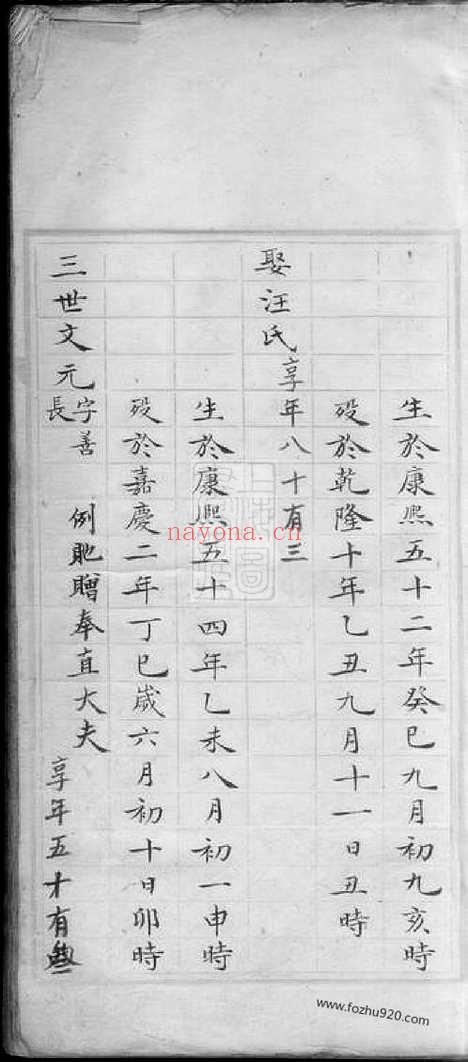 生於康熙五十二年癸巳九月初九亥時
歿於乾隆十年乙丑九月十一日丑時
娶汪氏 享年八十有三
生於康熙五十四年乙未八月初一申時
歿於嘉慶二年丁巳歲六月初十日卯時
三世文元 字善長 例貤贈奉直大夫 享年五十有叁
nayona.cn
www.fozhu920.com